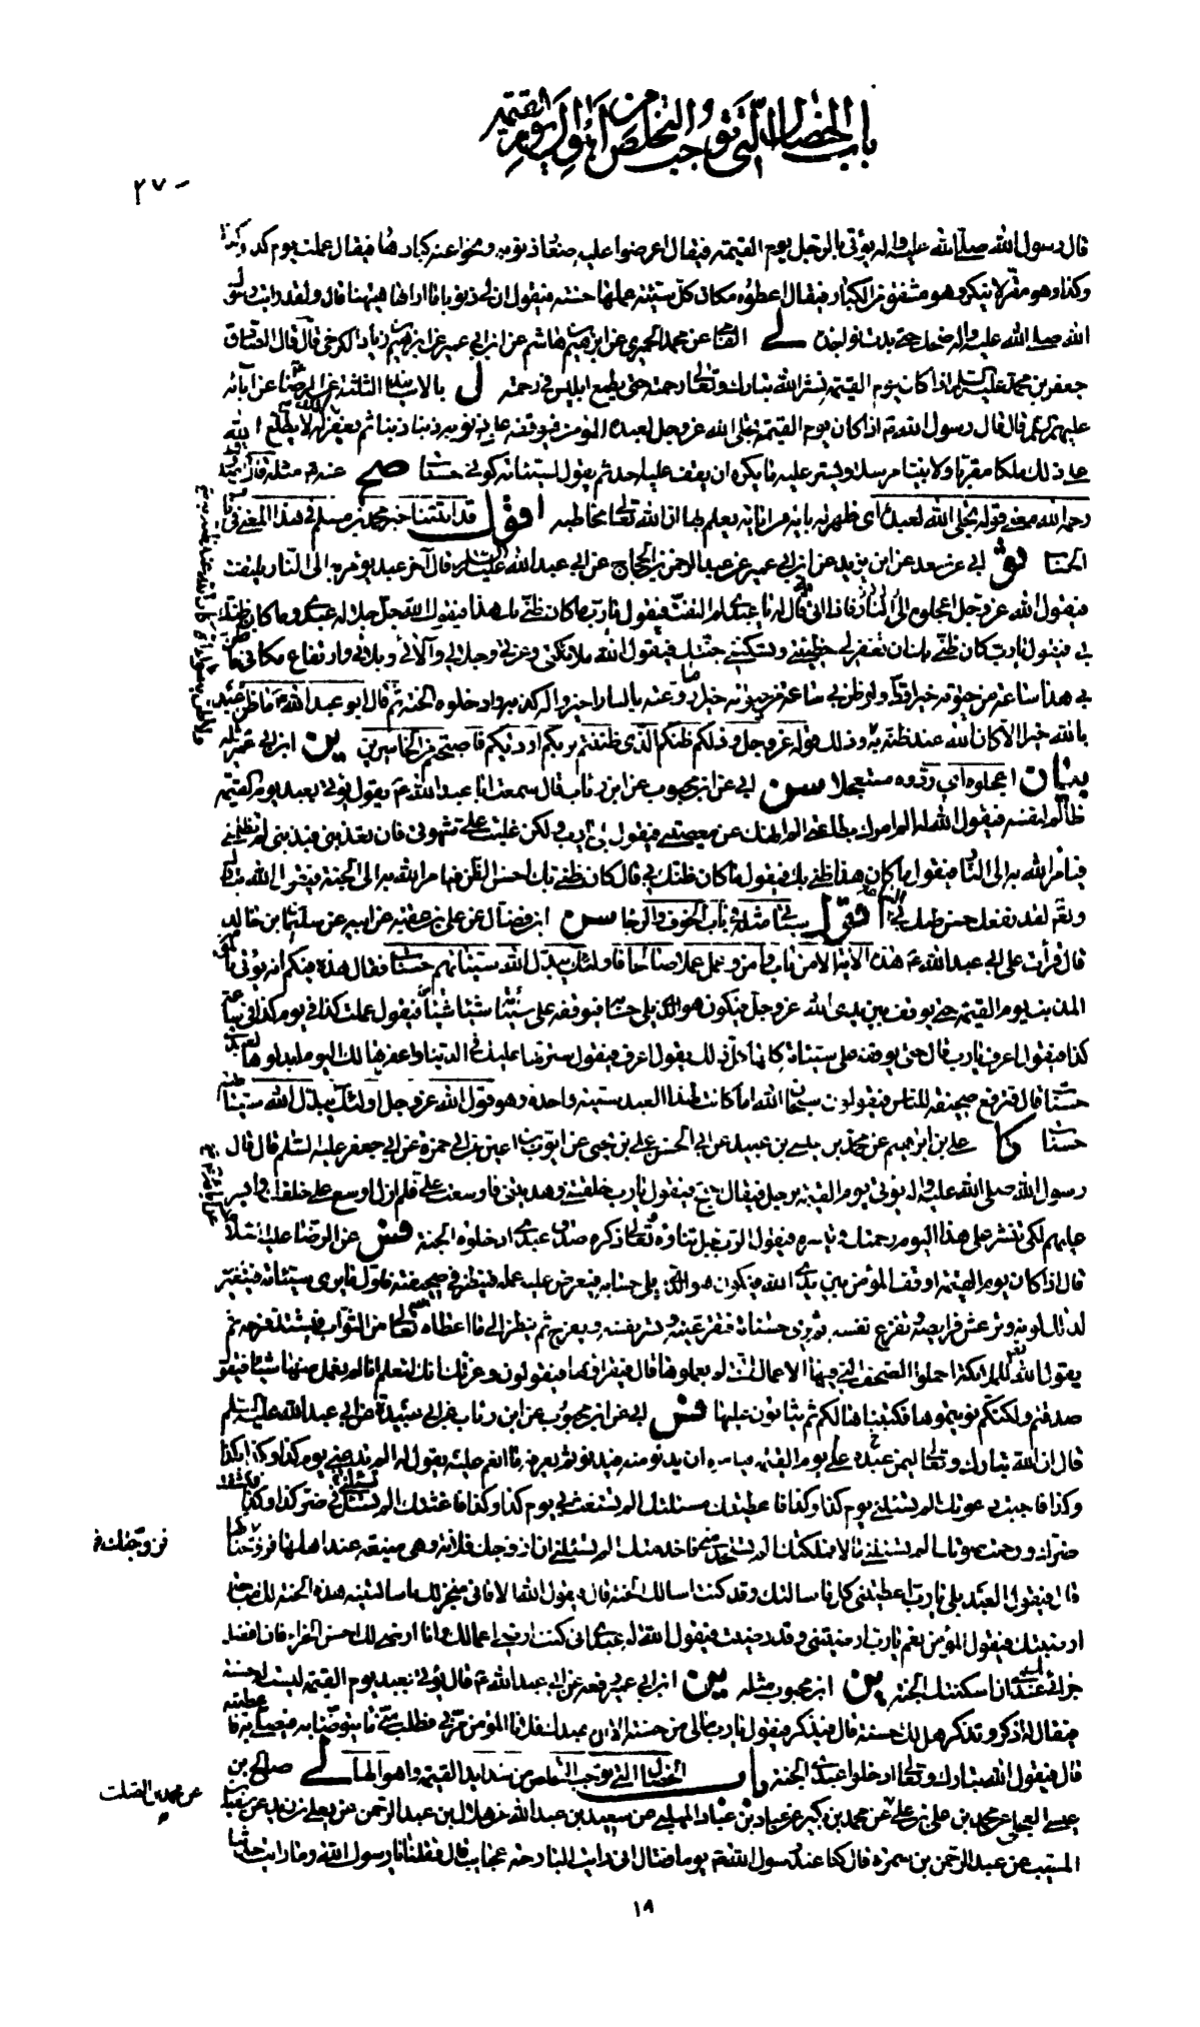 باب الخصال التی توجب التخلص من أهوال یوم القیمة
۲۷۰
قال رسول الله صلی الله علیه واله یؤتی بالرجل یوم القیمة فیقال اعرضوا علیه صغار ذنوبه ونحوا عنه کبارها فیقال عملت یوم کذا وکذا
وکذا وهو مقر لا ینکر وهو مشفق من الکبائر فیقال اعطوه مکان کل سیئة عملها حسنة فیقول ان لی ذنوبا ما اراها هیهنا قال ولقد رایت رسول
الله صلی الله علیه واله ضحک حتی بدت نواجذه لی عن محمد الحمیری عن ابن هاشم عن ابن ابی عمیر عن ابراهیم بن زیاد الکرخی قال قال الصادق
جعفر بن محمد علیه السلم اذا کان یوم القیمة نشر الله تبارک وتعالی رحمته حتی یطمع ابلیس فی رحمته ن بالاسانید الثلثة عن الرضا عن آبائه
علیهم السلم قال قال رسول الله ص اذا کان یوم القیمة تجلی الله عز وجل لعبده المؤمن فیوقفه علی ذنوبه ذنبا ذنبا ثم یغفر له لا یطلع الله
علی ذلک ملکا مقربا ولا نبیا مرسلا ویستر علیه ما یکره ان یقف علیه احد ثم یقول لسیئاته کونی حسنات صح عنه ع مثله
رحمه الله معنی قوله تجلی الله لعبده ای ظهر له بایة من ایاته یعلم بها ان الله تعالی مخاطبه اقول قد اثبتنا خبر محمد بن مسلم فی هذا المعنی فی باب
الحساب ثو ابی عن سعد عن ابن یزید عن ابن ابی عمیر عن عبد الرحمن بن الحجاج عن ابی عبد الله علیه السلم قال آخر عبد یؤمر به الی النار یلتفت
فیقول الله عز وجل اعجلوه فاذا اتی به قال له یا عبدی لم التفت فیقول یا رب ما کان ظنی بک هذا فیقول الله جل جلاله عبدی وما کان ظنک
بی فیقول یا رب کان ظنی بک ان تغفر لی خطیئتی وتسکننی جنتک فیقول الله ملائکتی وعزتی وجلالی وآلائی وبلائی وارتفاع مکانی ما ظن
بی هذا ساعة من حیوته خیرا قط ولو ظن بی ساعة من حیوته خیرا ما روعته بالنار اجیزوا له کذبه وادخلوه الجنة ثم قال ابو عبد الله ع ما ظن عبد
بالله خیرا الا کان الله عند ظنه به وذلک قوله عز وجل وذلکم ظنکم الذی ظننتم بربکم اردیکم فاصبحتم من الخاسرین ین ابن ابی عمیر مثله
بیان اعجلوه ای ردوه مستعجلا سن ابی عن ابن محبوب عن ابن رئاب قال سمعت ابا عبد الله ع یقول یؤتی بعبد یوم القیمة
ظالم لنفسه فیقول الله له الم آمرک بطاعتی الم انهک عن معصیتی فیقول بلی یا رب ولکن غلبت علی شهوتی فان تعذبنی فبذنبی لم تظلمنی
فیأمر الله به الی النار فیقول ما کان هذا ظنی بک فیقول ما کان ظنک بی قال کان ظنی بک احسن الظن فیامر الله به الی الجنة فیقول الله تبارک
وتعالی لقد نفعک حسن ظنک بی اقول سیأتی مثله فی باب الخوف والرجا سن ابن فضال عن علی بن عقبة عن ابیه عن سلیمان بن خالد
قال قرأت علی ابی عبد الله ع هذه الایة الا من تاب وآمن وعمل عملا صالحا فاولئک یبدل الله سیئاتهم حسنات فقال هذه فیکم انه یؤتی بالمؤمن
المذنب یوم القیمة حتی یوقف بین یدی الله عز وجل فیکون هو الذی یلی حسابه فیوقفه علی سیئاته شیئا شیئا فیقول عملت کذا فی یوم کذا فی ساعة
کذا فیقول اعرف یا رب قال حتی یوقفه علی سیئاته کلها کل ذلک یقول اعرف فیقول سترتها علیک فی الدنیا واغفرها لک الیوم ابدلوها لعبدی
حسنات قال فترفع صحیفته للناس فیقولون سبحان الله اما کانت لهذا العبد سیئة واحدة وهو قول الله عز وجل اولئک یبدل الله سیئاتهم
حسنات کا علی بن ابراهیم عن محمد بن عیسی بن عبید عن ابی الحسن علی بن یحیی عن ایوب بن اعین عن ابی حمزة عن ابی جعفر علیه السلم قال قال
رسول الله صلی الله علیه واله یؤتی یوم القیمة برجل فیقال احتج فیقول یا رب خلقتنی وهدیتنی فاوسعت علی فلم ازل اوسع علی خلقک وایسر
علیهم لکی تنشر علی هذا الیوم رحمتک وتیسره فیقول الرب جل ثناؤه وتعالی ذکره صدق عبدی ادخلوه الجنة فس عن الرضا علیه السلم
قال اذا کان یوم القیمة اوقف المؤمن بین یدی الله فیکون هو الذی یلی حسابه فیعرض علیه عمله فینظر فی صحیفته فاول ما یری سیئاته فیتغیر
لذلک لونه وترتعش فرایصه وتفزع نفسه ثم یری حسناته فتقر عینه وتسر نفسه ویفرح ثم ینظر الی ما اعطاه الله تعالی من الثواب فیشتد فرحه ثم
یقول الله للملائکة احملوا الصحف التی فیها الاعمال التی لم یعملوها قال فیقراؤنها فیقولون وعزتک انک لتعلم انا لم نعمل منها شیئا فیقول
صدقتم ولکنکم نویتموها فکتبناها لکم ثم یثابون علیها ابی عن ابن محبوب عن ابن رئاب عن ابی عبیدة عن ابی عبد الله علیه السلم
قال ان الله تبارک وتعالی لیمن علی عبده یوم القیمة فیامره ان یدنو منه فیدنو ثم یعرفه ما انعم علیه یقول له الم تدعنی یوم کذا وکذا بکذا
وکذا فاجبت دعوتک الم تسئلنی یوم کذا وکذا فاعطیتک مسئلتک الم تستغث بی یوم کذا وکذا فاغثتک الم تسئل فی ضر کذا وکذا فکشفت
ضرک ورحمت صوتک الم تسئلنی مالا فملکتک الم تستخدمنی فاخدمتک الم تسئلنی ان ازوجک فلانة وهی منیعة عند اهلها فزوجناکها
فزوجتک خ
قال فیقول العبد بلی یا رب اعطیتنی کل ما سالتک وقد کنت اسالک الجنة قال فیقول الله الا فانی منجز لک ما سالتنیه هذه الجنة لک مباحا
ارضیتک فیقول المؤمن نعم یا رب ارضیتنی وقد رضیت فیقول الله له عبدی انی کنت ارضی اعمالک وانا ارضی لک احسن الجزاء فان افضل
جزائی عندی ان اسکنتک الجنة ین ابن محبوب مثله ین ابن ابی عمیر رفعه عن ابی عبد الله ع قال یؤتی بعبد یوم القیمة لیست له حسنة
فیقال له اذکر وتذکر هل لک حسنة قال فیذکر فیقول یا رب مالی من حسنة الا ان عبدک فلانا المؤمن مر بی فطلبت منه ماء یتوضأ به فیصلی به فاعطیته
قال فیقول الله تبارک وتعالی ادخلوا عبدی الجنة باب الخصال التی توجب التخلص من شداید القیمة واهوالها لی صالح بن
عیسی العجلی عن محمد بن علی بن علی عن محمد بن بکیر عن عباد بن عباد المهلبی عن سعید بن عبد الله عن هلال بن عبد الرحمن عن یعلی بن زید عن سعید بن
عن محمد بن الصلت
المسیب عن عبد الرحمن بن سمرة قال کنا عند رسول الله ص یوما فقال انی رایت البارحة عجایب قال فقلنا یا رسول الله وما رایت حدثنا
۱۸